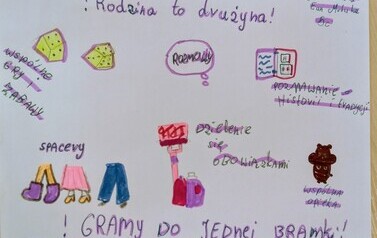 ! Rodzina to drużyna!
wspólne
gry
zabawy
Rozmowy
poznawanie
Historii i tradycji
SPACERY
Dzielenie
się
obowiązkami
wspólna
opieka
! GRAMY DO JEDNEJ BRAMKI!